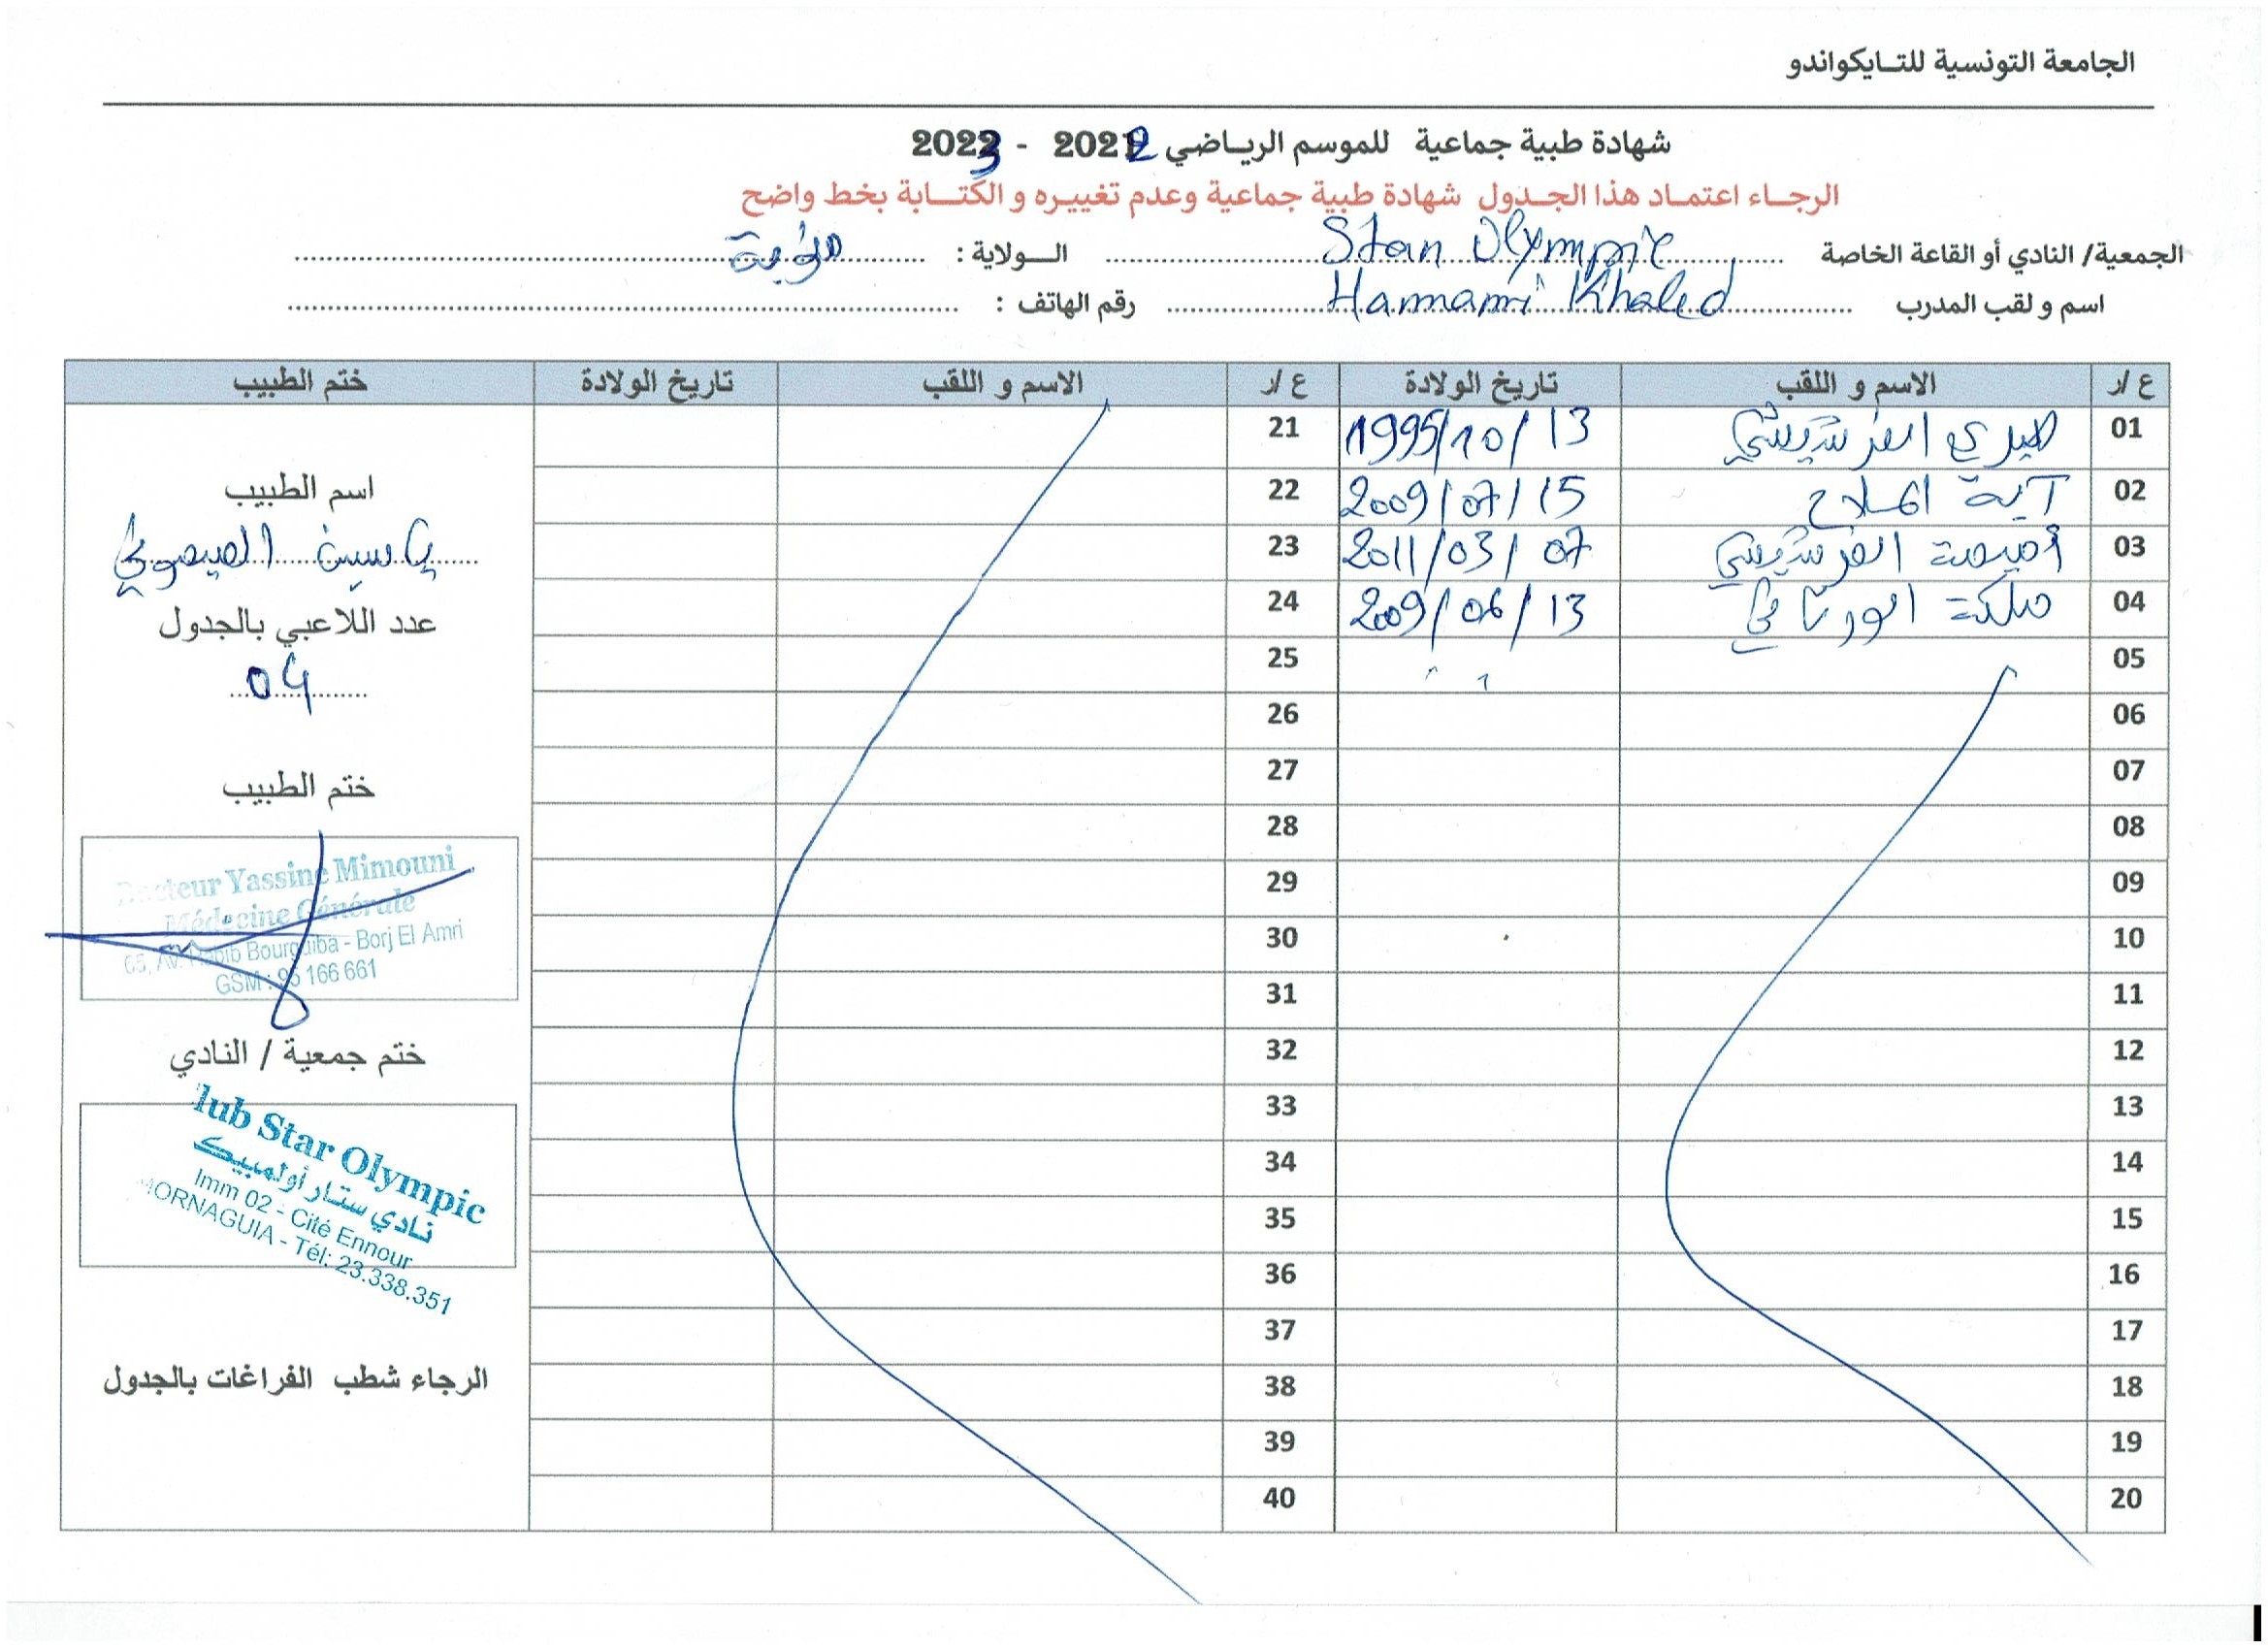 الجامعة التونسية للتـايكواندو
شهادة طبية جماعية للموسم الرياضي 2022 - 2023
الرجـاء اعتمـاد هذا الجـدول شهادة طبية جماعية وعدم تغييـره و الكتـابة بخط واضح
الجمعية/ النادي أو القاعة الخاصة Star Olympic الـــولاية : منوبة
اسم و لقب المدرب Hammami Khaled رقم الهاتف :
ع /ر الاسم و اللقب تاريخ الولادة ع /ر الاسم و اللقب تاريخ الولادة ختم الطبيب
01 الفرشيشي 1995/10/13 21
02 آية الملاح 2009/07/15 22
03 أميمة الفرشيشي 2011/03/07 23
04 ملكة الورتاني 2009/06/13 24
05 25
06 26
07 27
08 28
09 29
10 30
11 31
12 32
13 33
14 34
15 35
16 36
17 37
18 38
19 39
20 40
اسم الطبيب
ياسين الميموني
عدد اللاعبي بالجدول
04
ختم الطبيب
Docteur Yassine Mimouni
Médecine Générale
65, Av. Habib Bourguiba - Borj El Amri
GSM : 95 166 661
ختم جمعية / النادي
lub Star Olympic
نادي ستار أولمبيك
Imm 02 - Cité Ennour
MORNAGUIA - Tél: 23.338.351
الرجاء شطب الفراغات بالجدول